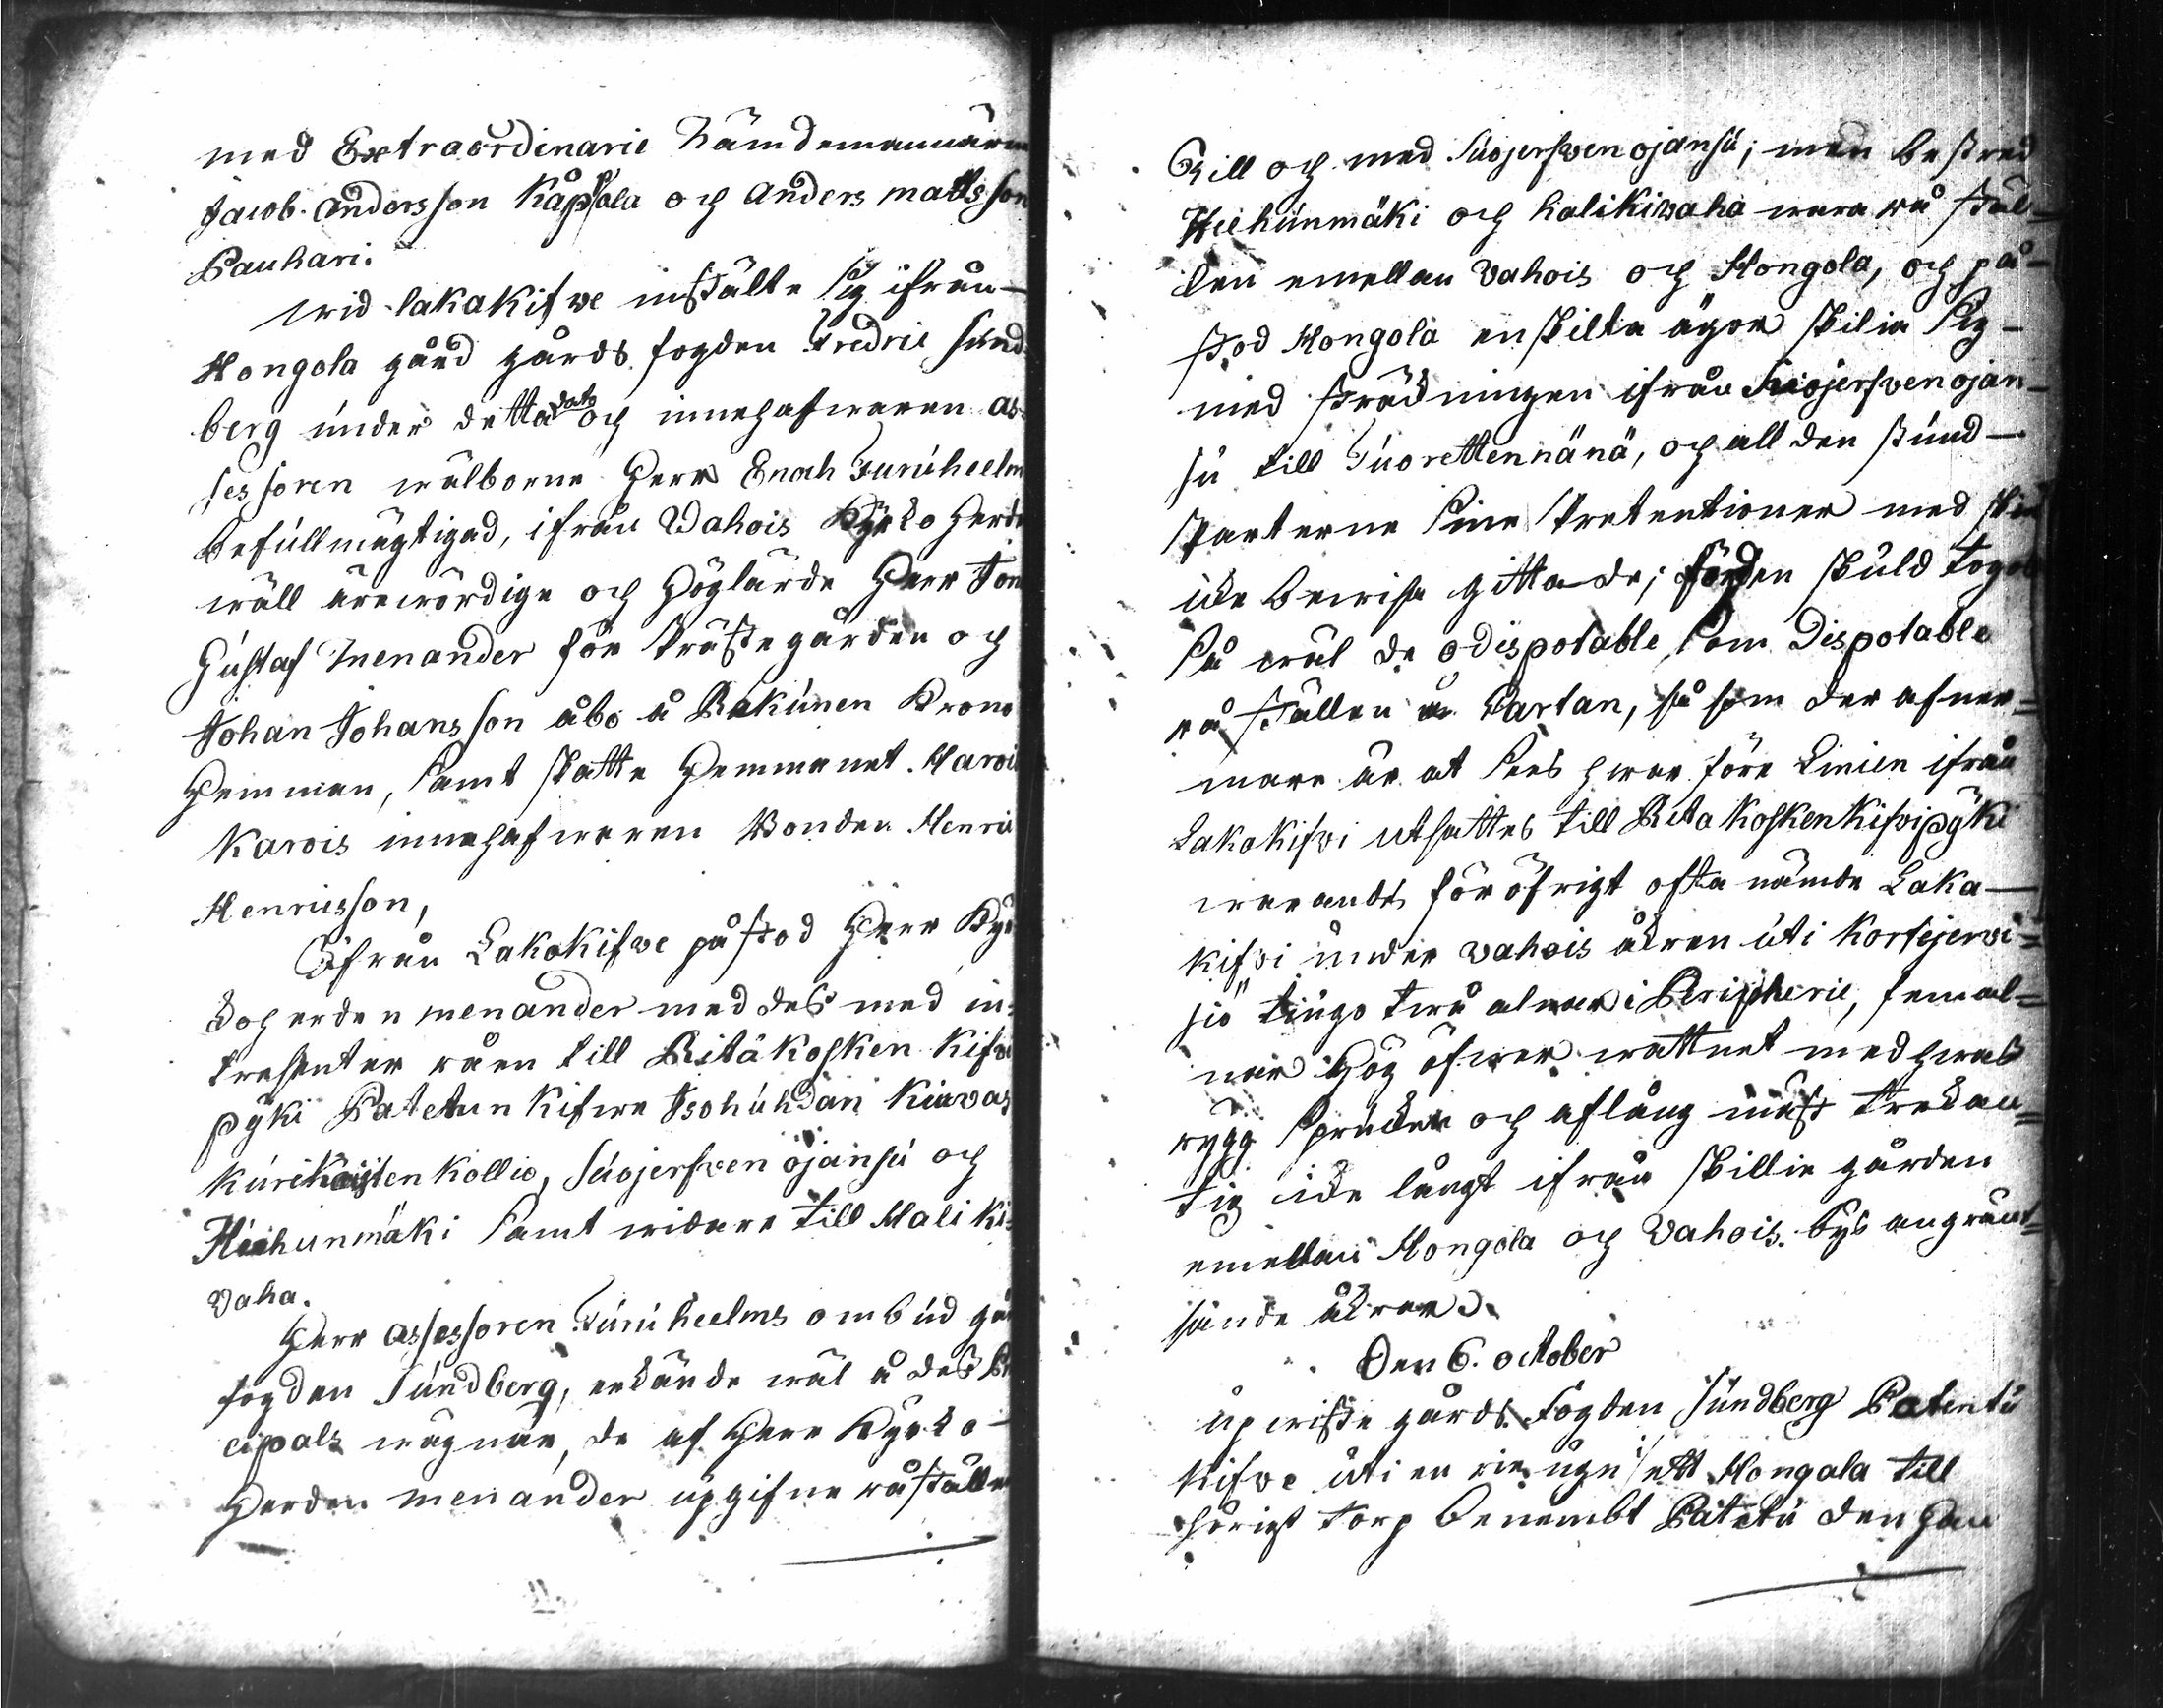 med Extraordinarie Nämdemännärne
Jacob Andersson Kåppola och Anders Mattsson
Pauhari.
wid Lakakifwe instälte sig ifrån
Hongola gård gårds fogden Fredric Sund
berg under detta dato och innehafwaren as-
sessoren wälborne Herr Enoch Furuhielm
befullmägtigad, ifrån Wahois Kyrko Herden
wäll ärewördige och Höglärde Herr
Gustaf Menander för Prästegården och
Johan Johansson åbo å Rekunen Krono
Hemman, samt skatte Hemmanet
Karvis innehafwaren Bonden Henric
Henricsson,
Ifrån Lakakifwe påstod Herr Kyr
koherden Menander med dess med in-
tressenter råen till Ritakosken Kifwi
pyki Patetun Kifwe Isohuhdan Kiuvas
Kollio, Suojerfwen ojansu och
Hiehunmäki samt widare till Haliki-
vaha.
Herr Assessoren Furuhielms ombud går
fogden Sundberg, erkände wäl å dess Prin
cipals wägnar, de af Herr Kyrko-
Herden Menander upgifne råställen
till och med Suojerfwen ojansu; men bestred
Hiehunmäki och Halikiwaha wara rå skäl-
len emellan Vahois och Hongola, och på-
stod Hongola enskilta ägor skilia sig
med sträckningen ifrån Suojerfwen ojan-
su till Tuorettennänä, och all den stund
Parterne sine Pretentioner med skiäl
icke bewisa gitta de; för den skuld togos
så wäl de odispotable som Dispotable
rå ställen å Kartan, så som der af när-
mare är at sees hwar före Linien ifrån
Lakakifwi utsattes till Rita Kosken Kifwipyki
warandes för öfrigt ofta nämde Laka-
kifwi under Vahois åkren uti Kortejerwi-
siö tiugo twå alnar i Peripherie, femal-
nar hög öfwer wattnet med hwas
rygg sprucken och aflång mäst trekan-
tig icke långt ifrån skillie gården
emellan Hongola och Vahois bys angränt-
sande åkrar.
Den 6. october
upwiste gårds Fogden Sundberg Patentu
Kifwe uti en rieugn i ett Hongala till
hörigt torp benembt Patetu den han